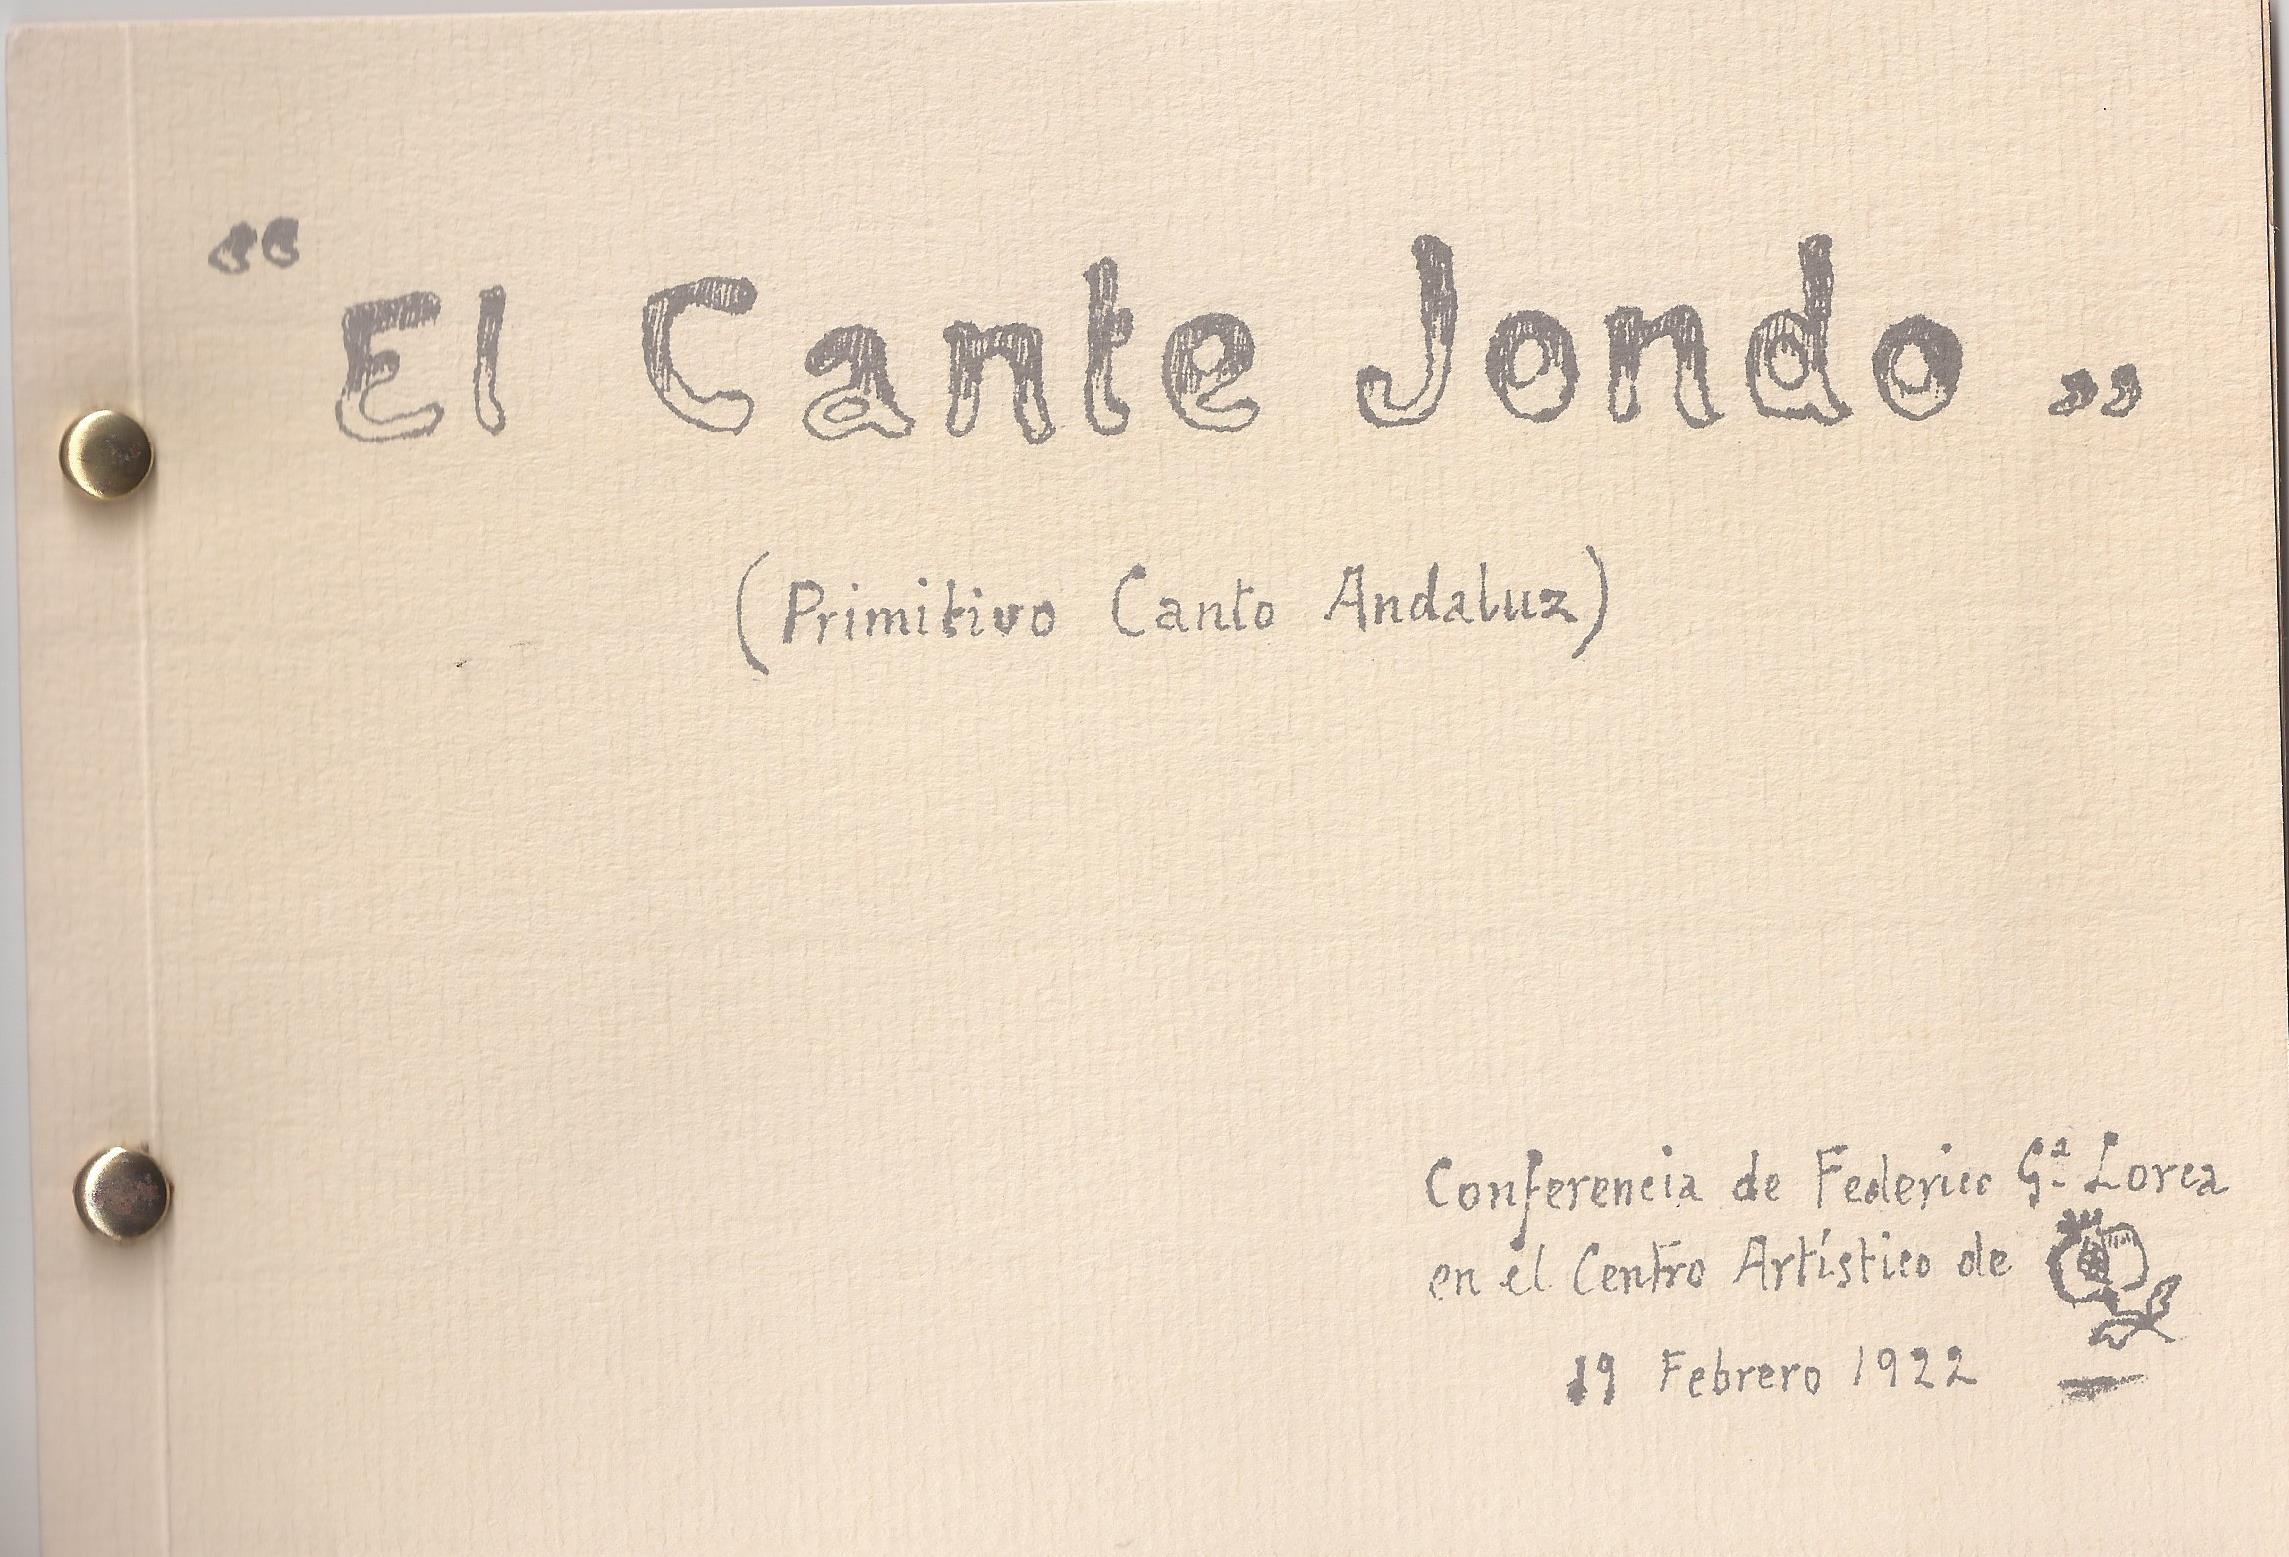 “El Cante Jondo”
(Primitivo Canto Andaluz)
Conferencia de Federico Gª Lorca
en el Centro Artístico de
19 Febrero 1922